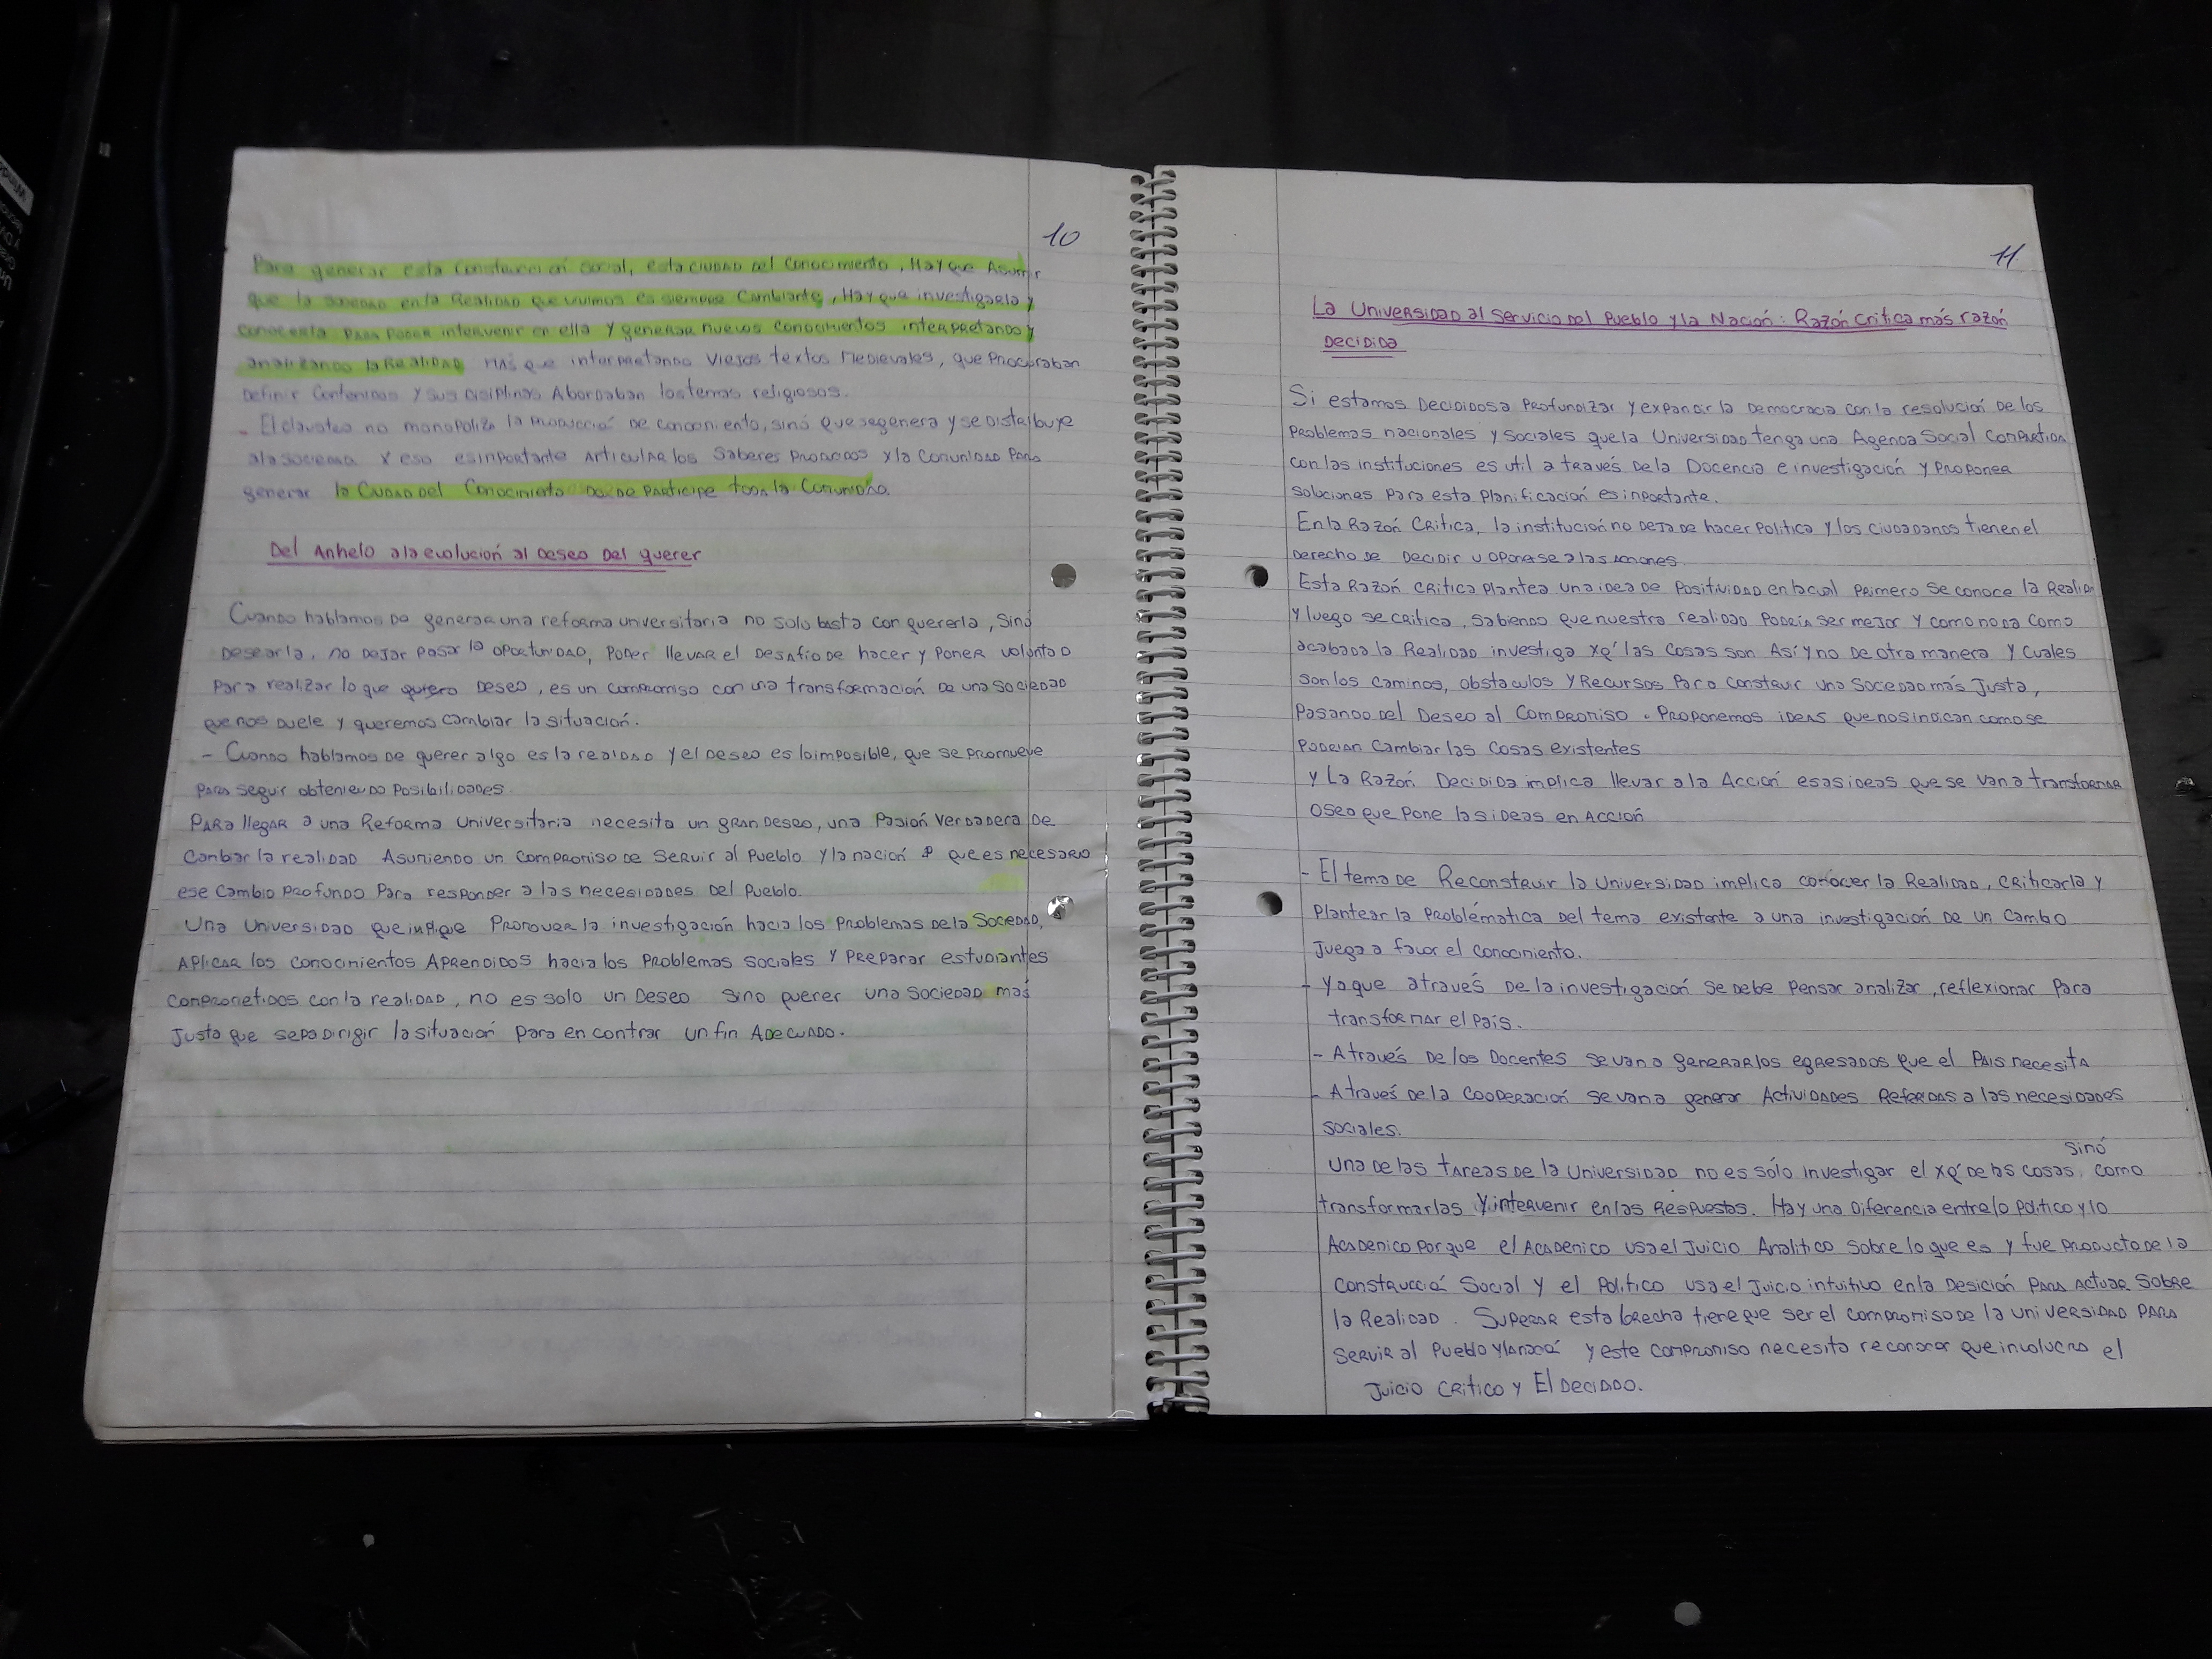 10
Para generar esta Construcción social, esta CIUDAD del Conocimiento, Hay que Asumir
que la sociedad en la Realidad que vivimos es siempre Cambiante, Hay que investigarla y
conocerla para poder intervenir en ella y generar nuevos conocimientos interpretando y
analizando la Realidad más que interpretando Viejos textos Medievales, que Procuraban
Definir Contenidos y sus disiplinas Abordaban los temas religiosos.
- El claustro no monopoliza la producción de conocimiento, sinó que se genera y se Distribuye
a la sociedad y eso es inportante Articular los Saberes Producidos y la Comunidad Para
generar la Ciudad del Conocimiento donde Participe toda la Comunidad.
Del Anhelo a la evolución al deseo Del querer
Cuando hablamos de generar una reforma universitaria no solo basta con quererla, Sinó
Desearla, no Dejar pasar la oportunidad, Poder llevar el Desafío de hacer y Poner voluntad
Para realizar lo que quiero Deseo, es un compromiso con una transformación De una sociedad
que nos Duele y queremos cambiar la situación.
- Cuando hablamos De querer algo es la realidad y el Deseo es lo imposible, que se promueve
para seguir obteniendo Posibilidades.
Para llegar a una Reforma Universitaria necesito un gran Deseo, una Pasión Verdadera De
Cambiar la realidad Asumiendo un compromiso De Servir al Pueblo y la nación que es necesario
ese Cambio Profundo Para responder a las necesidades Del Pueblo.
Una Universidad que inplique Promover la investigación hacia los Problemas De la Sociedad,
Aplicar los conocimientos Aprendidos hacia los Problemas sociales y Preparar estudiantes
comprometidos con la realidad, no es solo un Deseo Sino querer una sociedad más
Justa que sepa Dirigir la situación para encontrar un fin Adecuado.
11
La Universidad al Servicio Del Pueblo y la Nación: Razón Critica más razón
Decidida
Si estamos Decididos a Profundizar y expandir la Democracia con la resolución De los
Problemas nacionales y sociales que la Universidad tenga una Agenda Social Compartida
con las instituciones es util a través De la Docencia e investigación y Proponer
soluciones Para esta Planificación es inportante.
En la Razón Critica, la institución no Deja De hacer Politica y los ciudadanos tienen el
Derecho De Decidir u oponerse a las Acciones.
Esta Razón Critica Plantea una idea De Positividad en la cual Primero se conoce la Realidad
y luego se critica, sabiendo que nuestra realidad Podría ser mejor y como no Da como
acabada la Realidad investiga xq' las Cosas son Así y no De otra manera y Cuales
son los caminos, obstaculos y Recursos Para construir una Sociedad más Justa,
Pasando Del Deseo al Compromiso. Proponemos ideas que nos indican como se
Podrian Cambiar las Cosas existentes
y La Razón Decidida implica llevar a la Acción esas ideas que se van a transformar
Osea que Pone las ideas en Acción
- El tema De Reconstruir la Universidad implica conocer la Realidad, criticarla y
Plantear la Problématica Del tema existente a una investigación De un Cambio
Juega a favor el conocimiento.
- Ya que através De la investigación se Debe Pensar analizar, reflexionar Para
transformar el País.
- A través De los Docentes se van a generar los egresados que el Pais necesita
- A través De la Cooperación se van a generar Actividades Referidas a las necesidades
sociales.
Una De las tareas De la Universidad no es sólo investigar el xq' De las cosas, sinó como
transformarlas y intervenir en las Respuestas. Hay una Diferencia entre lo Político y lo
Academico Porque el Academico usa el Juicio Analitico Sobre lo que es y fue Producto De la
Construcció Social y el Politico usa el Juicio intuitivo en la Desición Para Actuar Sobre
la Realidad. Superar esta brecha tiene que ser el compromiso De la universidad Para
Servir al Pueblo y la nació y este compromiso necesita reconocer que involucra el
Juicio Critico y El Decidido.